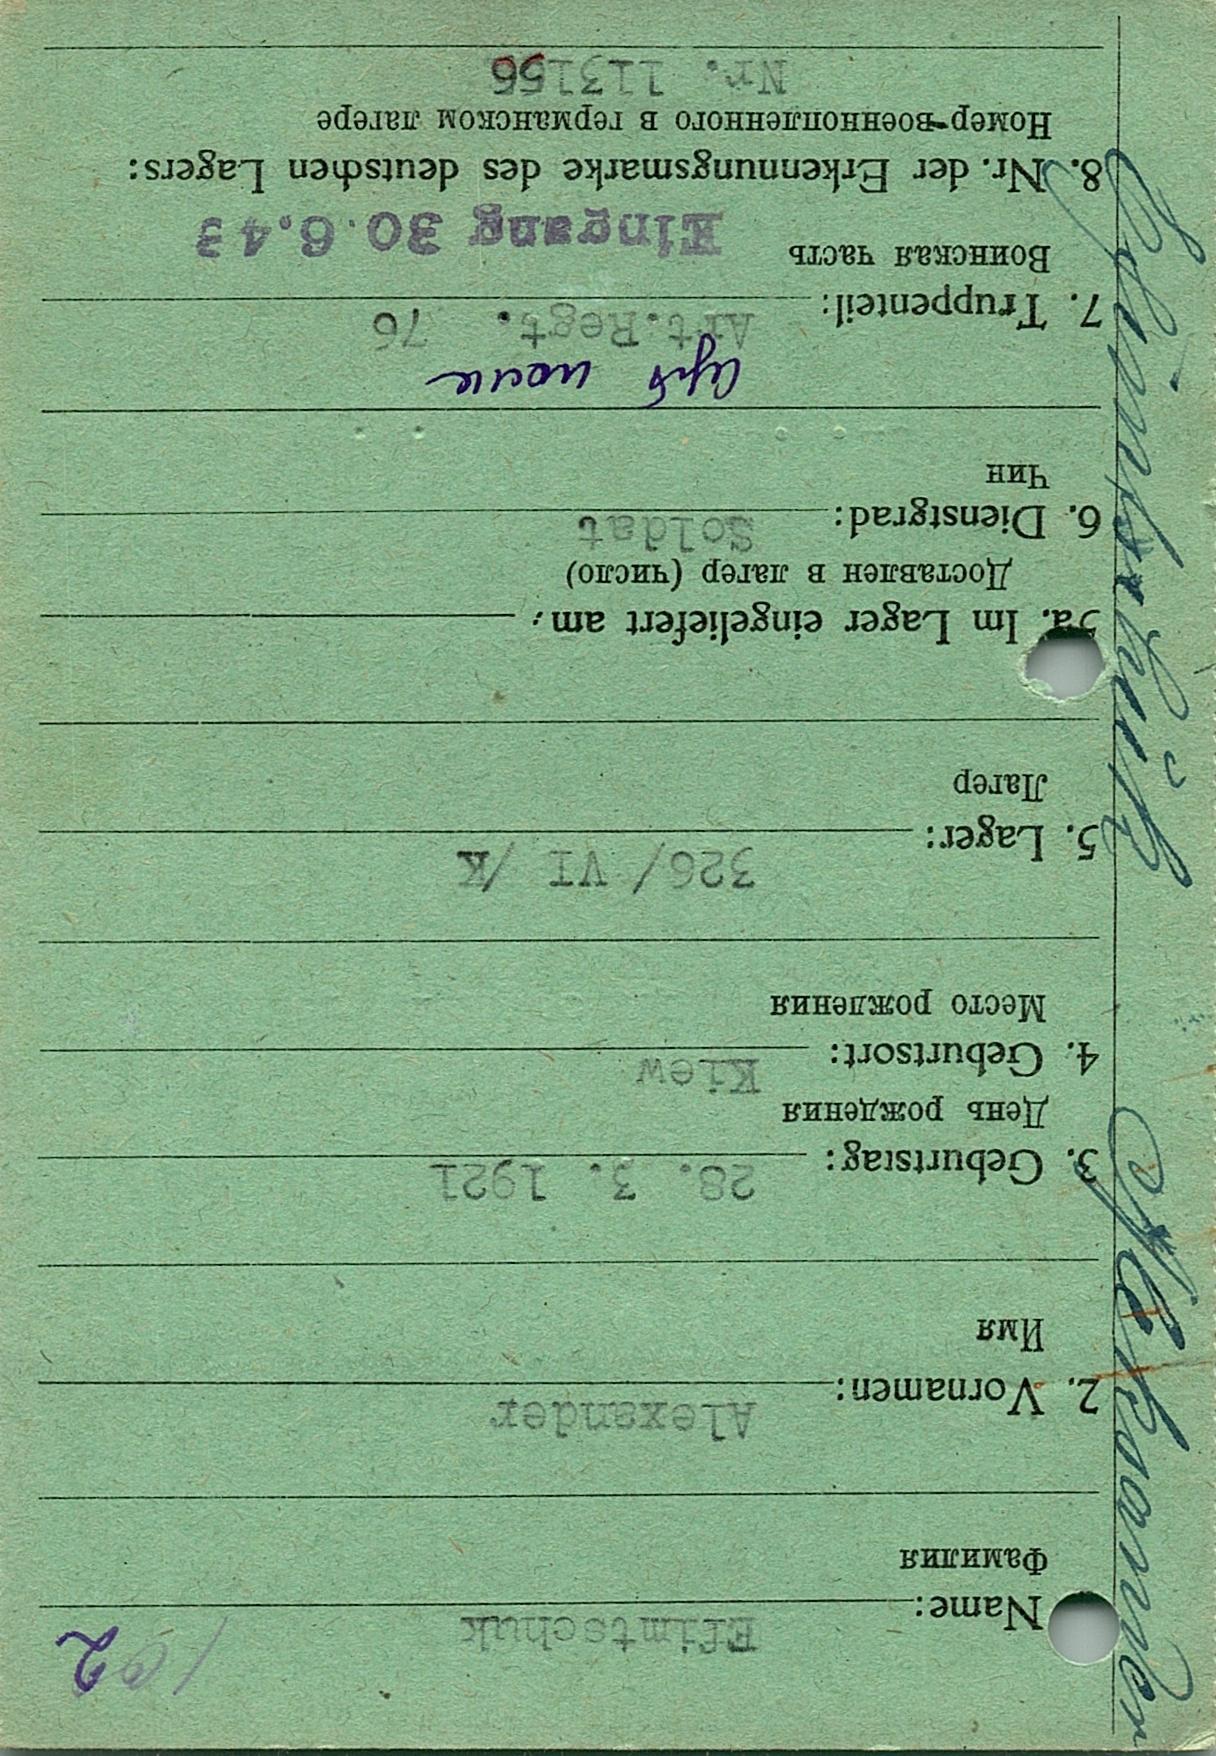 102
Name: Efimtschuk
Фамилия
2. Vornamen: Alexander
Имя
3. Geburtstag: 28. 3. 1921
День рождения
4. Geburtsort: Kiew
Место рождения
5. Lager: 326/ VI /K
Лагерь
5a. Im Lager eingeliefert am:
Доставлен в лагер (число)
6. Dienstgrad: Soldat
Чин
7. Truppenteil: Art.Regt. 76
Воинская часть
Eingang 30.6.43
8. Nr. der Erkennungsmarke des deutschen Lagers:
Номер-военнопленного в германском лагере
Nr. 113156
Efimtschuk Alexander